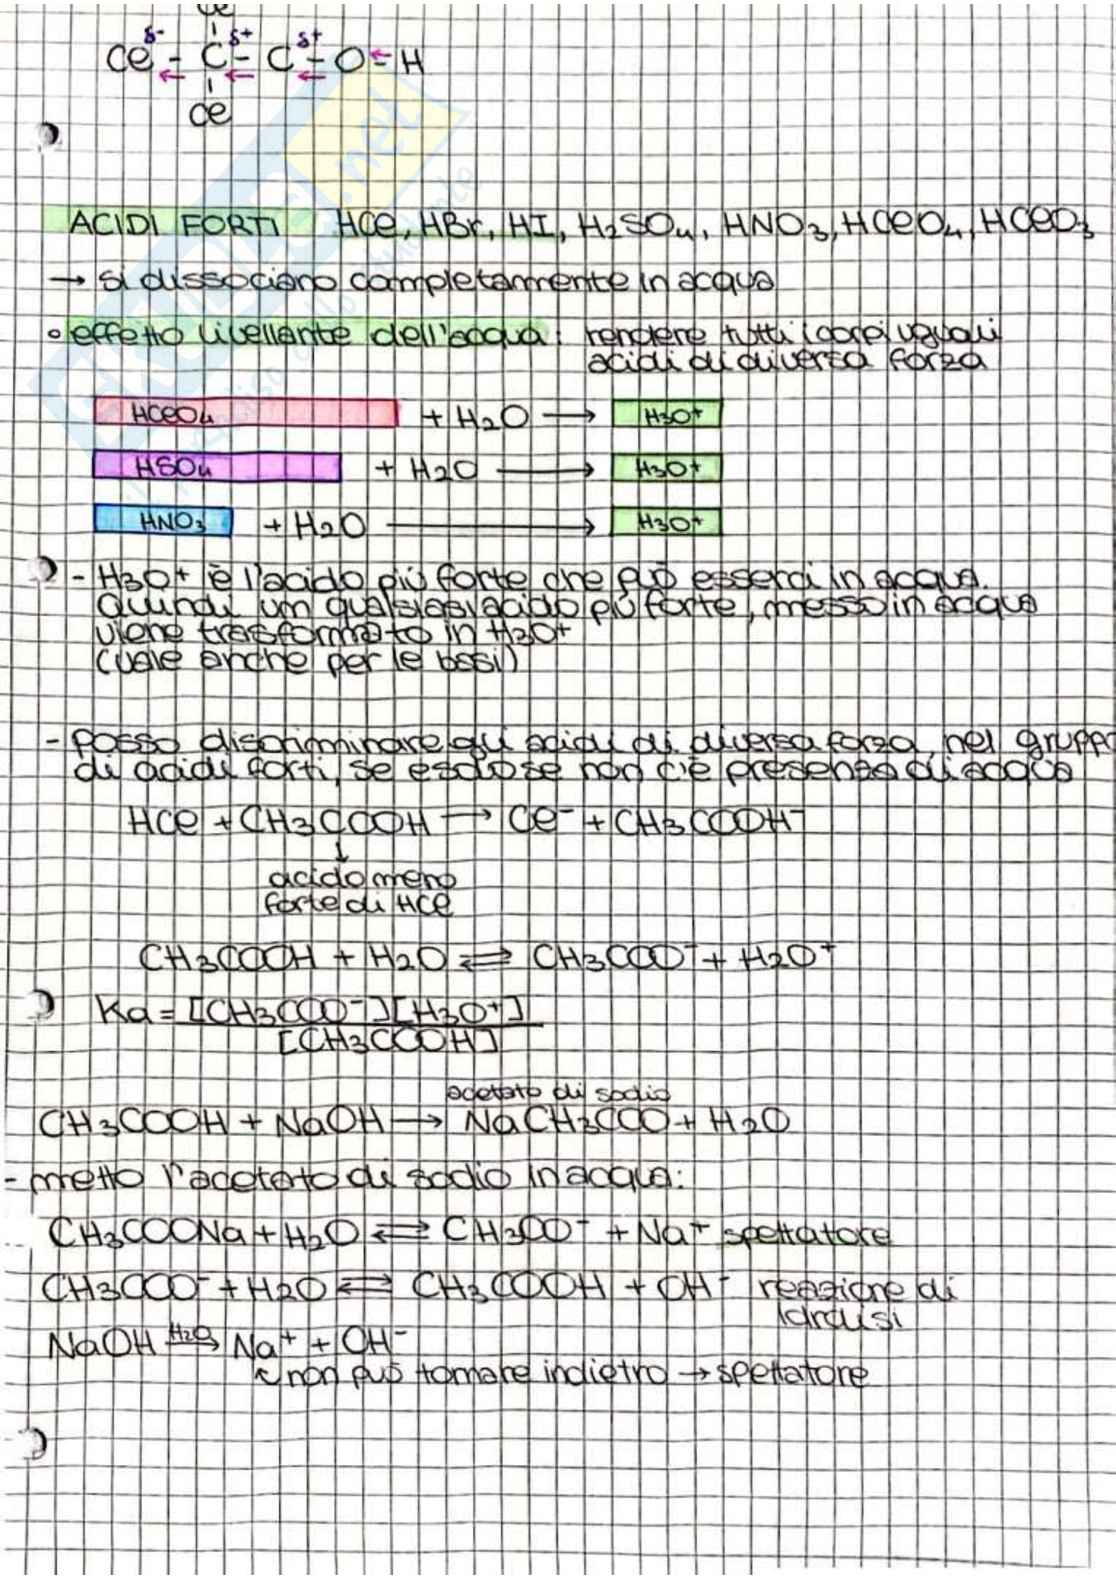 Cl
δ- δ+ δ+
Cl - C - C - O - H
Cl
ACIDI FORTI HCl, HBr, HI, H2SO4, HNO3, HClO4, HClO3
→ si dissociano completamente in acqua
• effetto livellante dell'acqua: rendere tutti i corpi uguali
acidi di diversa forza
HClO4 + H2O → H3O+
HSO4 + H2O → H3O+
HNO3 + H2O → H3O+
- H3O+ è l'acido più forte che può esserci in acqua.
Quindi un qualsiasi acido più forte, messo in acqua
viene trasformato in H3O+
(vale anche per le basi)
- posso discriminare gli acidi di diversa forza, nel gruppo
di acidi forti, se e solo se non c'è presenza di acqua
HCl + CH3COOH → Cl- + CH3COOH-
↓
acido meno
forte di HCl
CH3COOH + H2O ⇌ CH3COO- + H2O+
Ka = [CH3COO-][H3O+]
[CH3COOH]
acetato di sodio
CH3COOH + NaOH → NaCH3COO + H2O
- metto l'acetato di sodio in acqua:
CH3COONa + H2O ⇌ CH3CO- + Na+ spettatore
CH3COO- + H2O ⇌ CH3COOH + OH- reazione di
idrolisi
H2O
NaOH → Na+ + OH-
↖ non può tornare indietro → spettatore